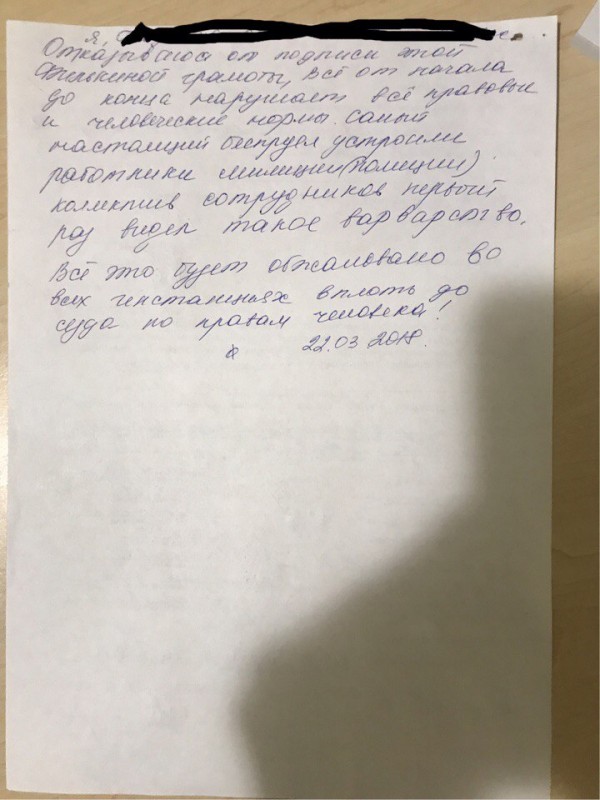 Я,
Отказываюсь от подписи этой
Филькиной грамоты, Всё от начала
до конца нарушает всё правовые
и человеческие нормы. Самый
настаищий беспрудел устроили
работники милиции(Полиции).
колектив сотрудников первый
раз видел такое варварство.
Всё это будет обжаловано во
всех генстанциях вплоть до
суда по правам человека!
22.03 2018.